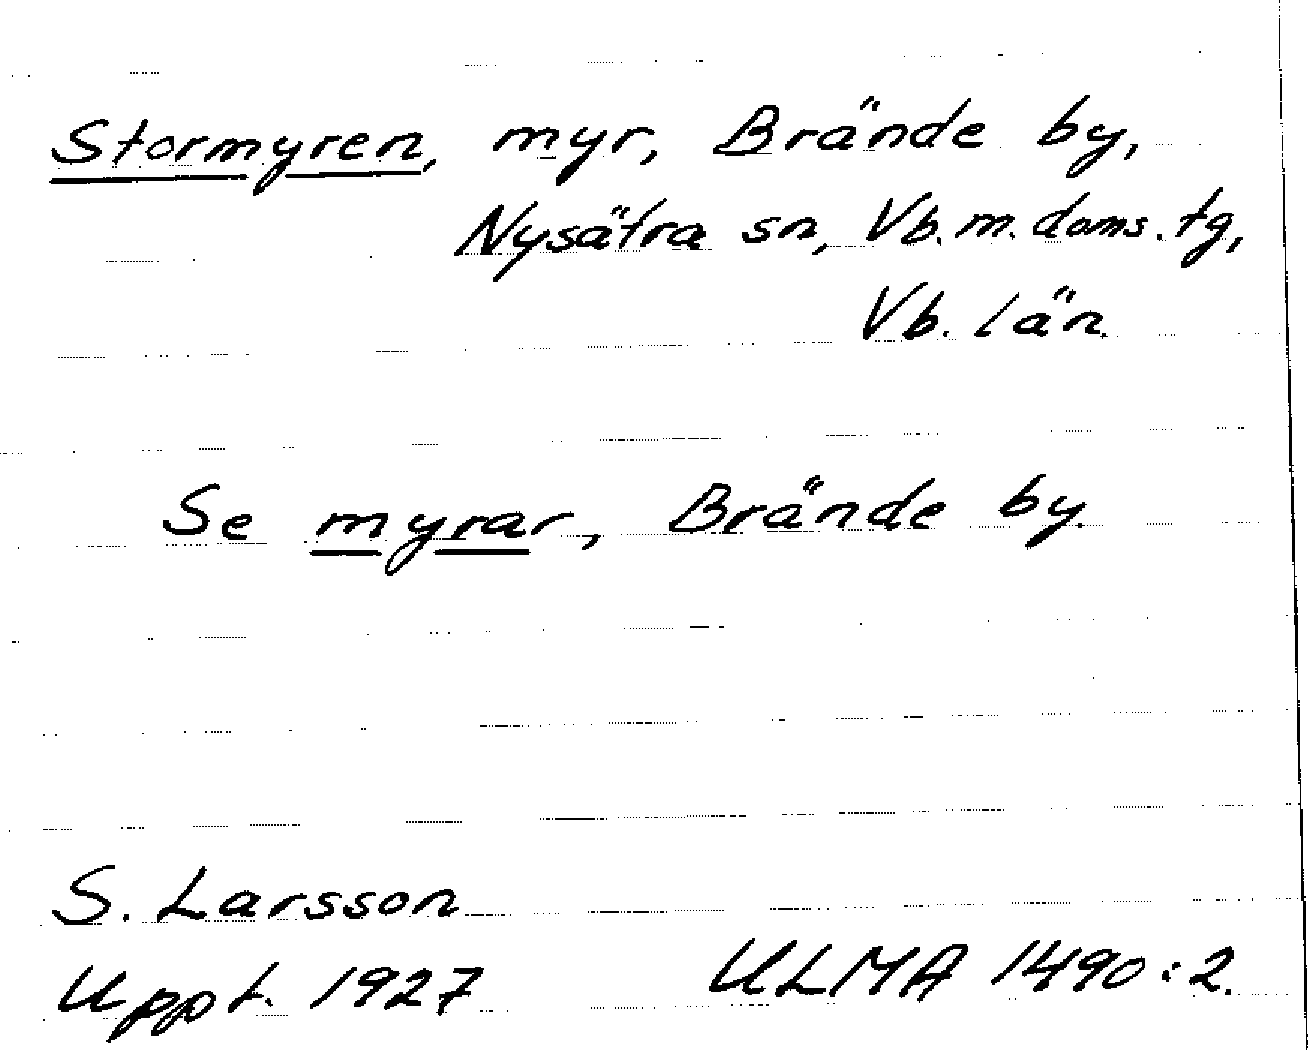 Stormyren, myr, Brände by,
Nysätra sn, Vb. m. doms. tg,
Vb. län
Se myrar, Brände by
S. Larsson
Uppt. 1927 ULMA 1490:2.